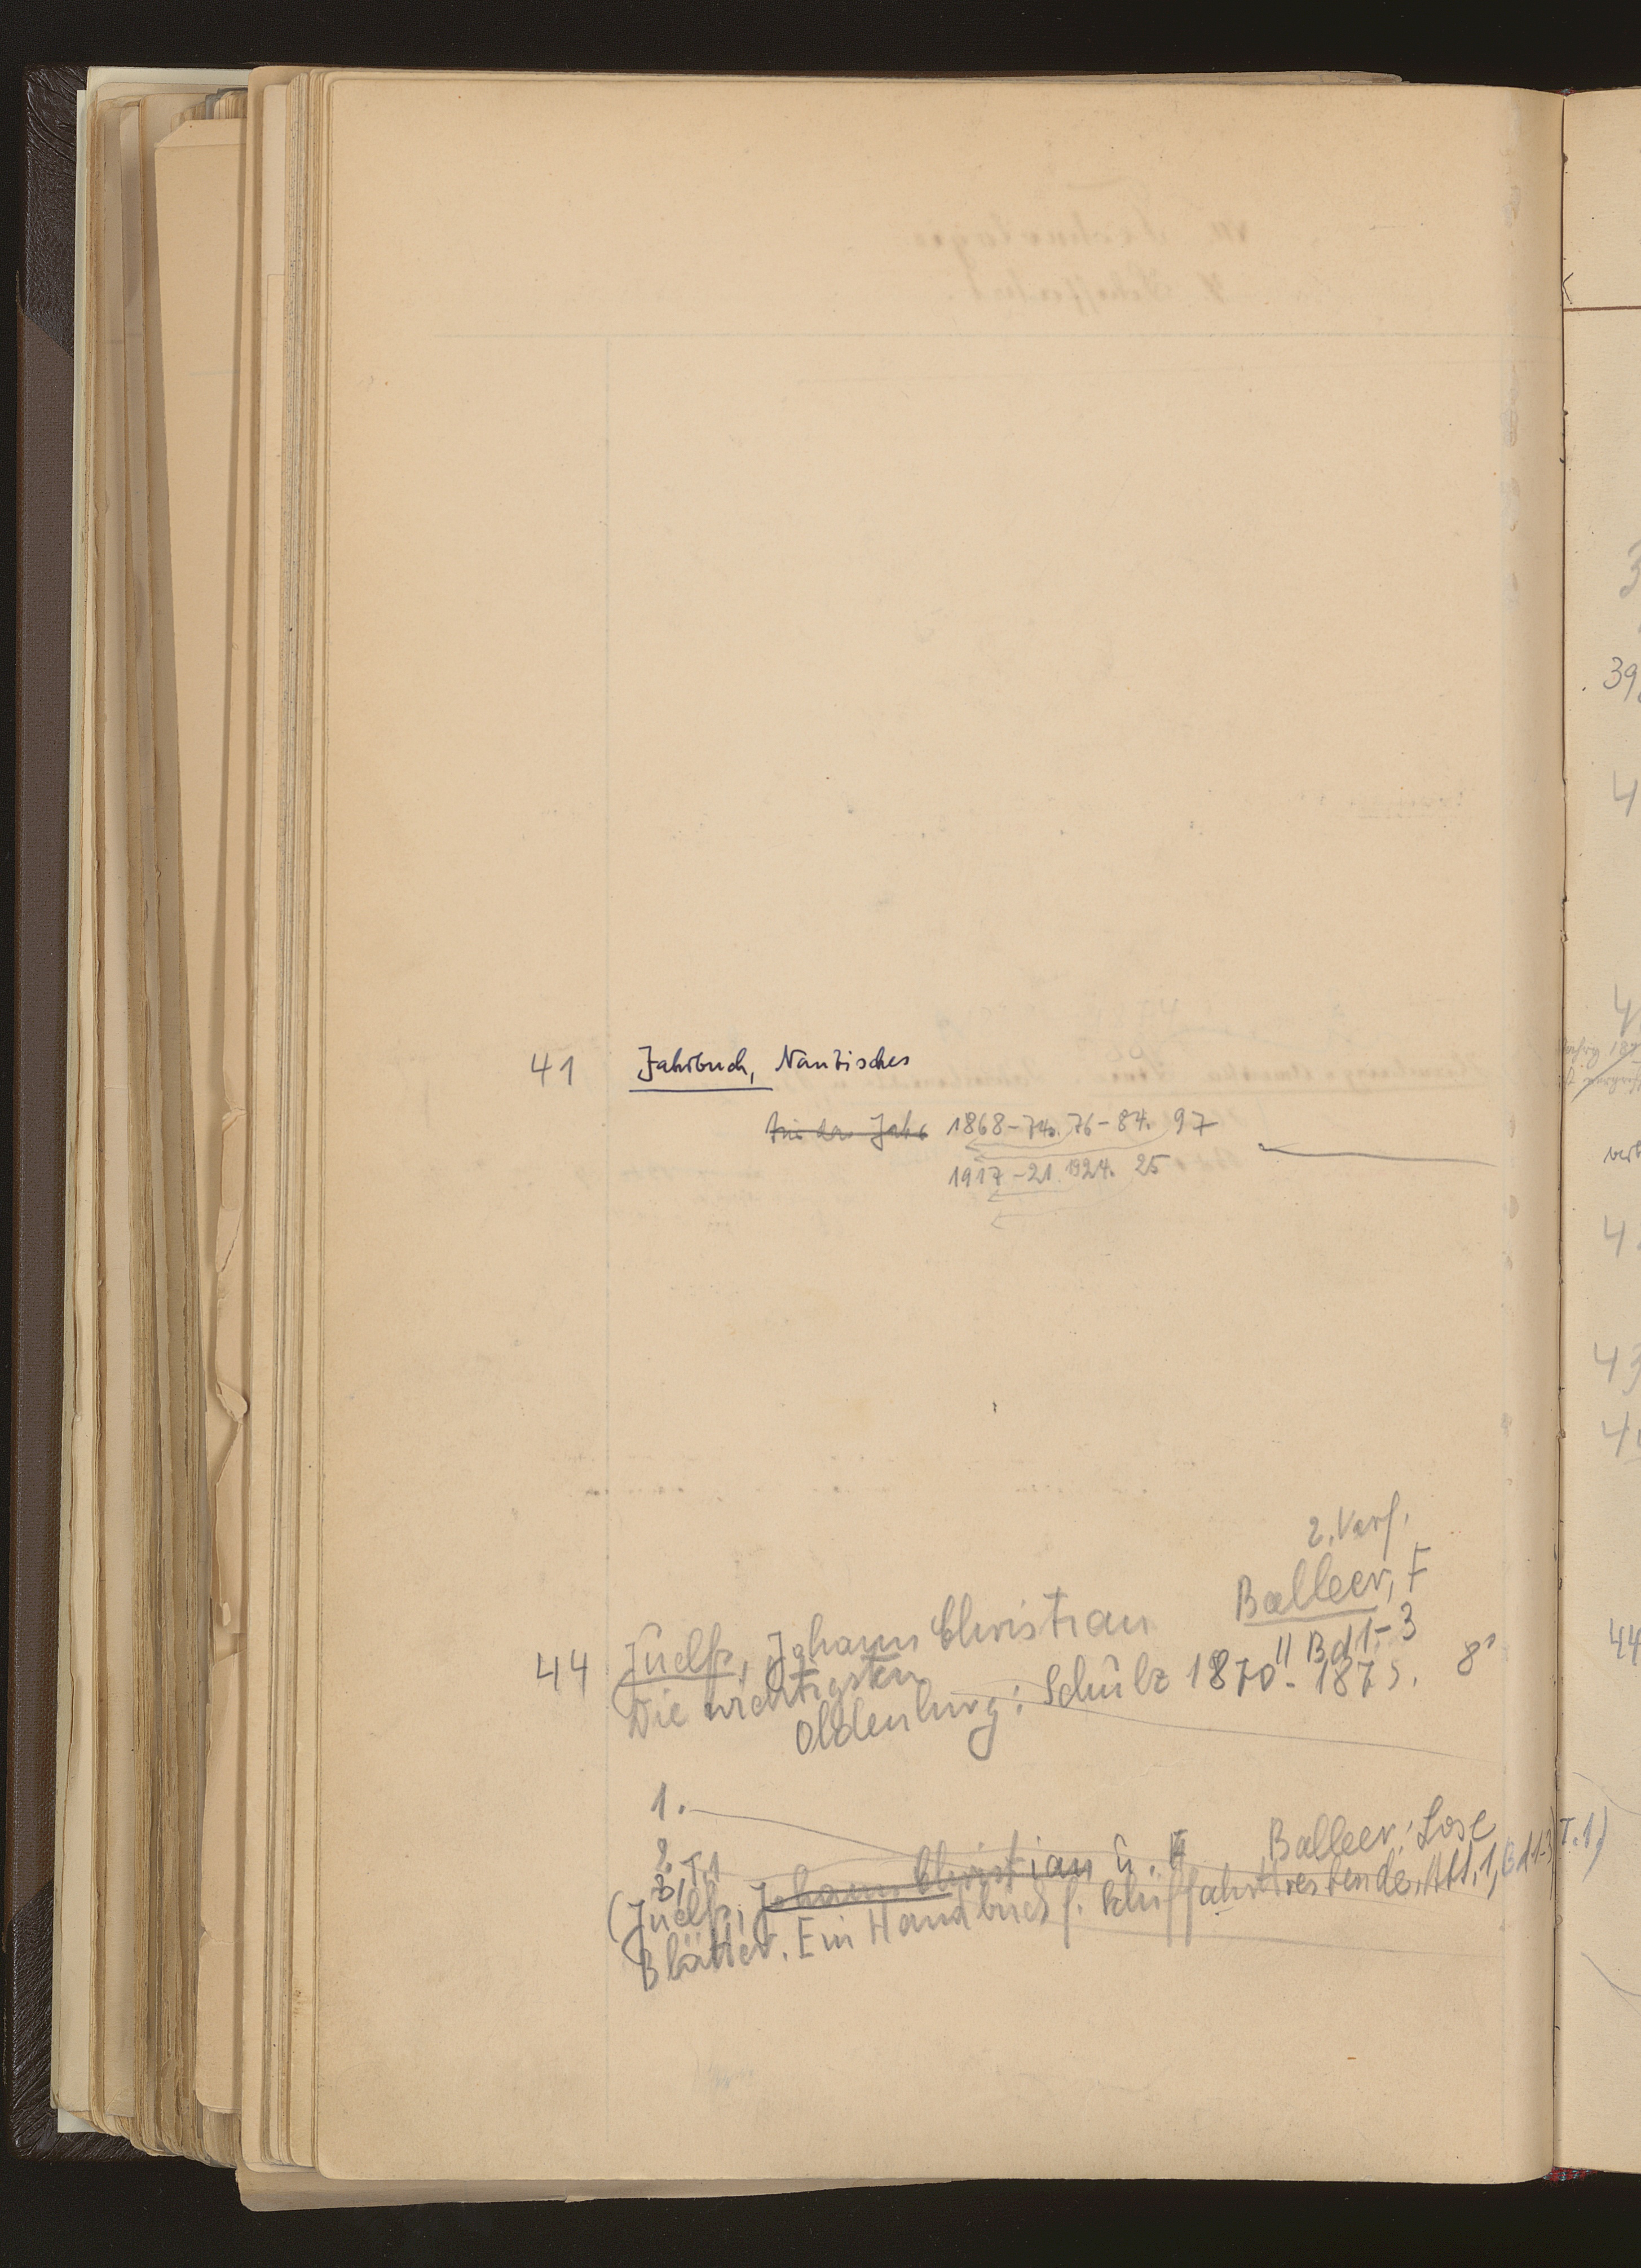 41 Jahrbuch, Nautisches
1868-74. 76-84. 97
1917-21. 1924. 25
2. Verf.
Balleer, F
44 Jüelfs, Johann Christian
" Bd 1-3
Die wichtigsten
Oldenburg: Schulz 1870 - 1875. 8°
1.
2.
3, T.1
(Jüelfs, Johann Christian u. F Balleer: Lose
Blätter. Ein Handbuch f. Schiffahrttreibende. Abt. 1, B 1-3, T. 1)
39
43
44